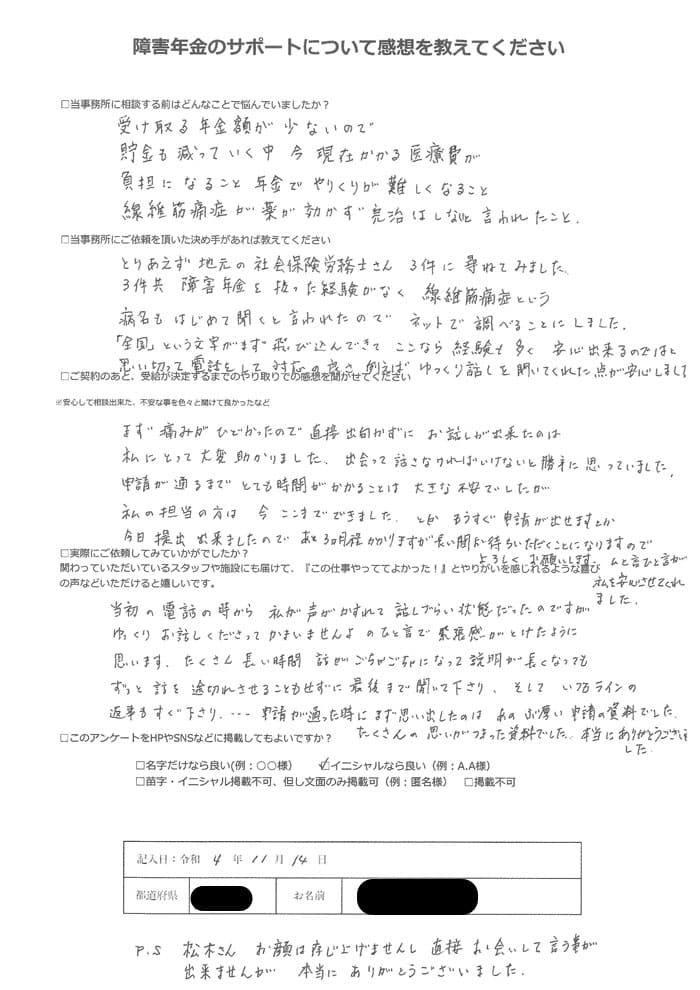 障害年金のサポートについて感想を教えてください
□当事務所に相談する前はどんなことで悩んでいましたか？
受け取る年金額が少ないので
貯金も減っていく中 今現在かかる医療費が
負担になること 年金でやりくりが難しくなること
線維筋痛症が薬が効かず完治はしないと言われたこと.
□当事務所にご依頼を頂いた決め手があれば教えてください
とりあえず地元の社会保険労務士さん 3件に尋ねてみました、
3件共 障害年金を扱った経験がなく 線維筋痛症という
病名もはじめて聞くと言われたので ネットで調べることにしました.
「全国」という文字がまず飛び込んできて ここなら経験も多く 安心出来るのではと
思い切って電話をして 対応の良さ 例えば ゆっくり話しを聞いてくれた点が安心しまして
□ご契約のあと、受給が決定するまでのやり取りでの感想を聞かせてください
※安心して相談出来た、不安な事を色々と聞けて良かったなど
まず痛みがひどかったので直接出向かずに お話しが出来たのは
私にとって大変助かりました、出会って話さなければいけないと勝手に思っていました,
申請が通るまで とても時間がかかることは 大きな不安でしたが
私の担当の方は 今 ここまでできました、とか もうすぐ申請が出せますとか
今日提出出来ましたので あと3ヶ月程かかりますが長い間お待ちいただくことになりますので
よろしくお願いします. ひと言ひと言が
私を安心させてくれ
ました.
□実際にご依頼してみていかがでしたか？
関わっていただいているスタッフや施設にも届けて、『この仕事やっててよかった！』とやりがいを感じれるような喜び
の声などいただけると嬉しいです。
当初の電話の時から 私が声がかすれて 話しづらい状態だったのですが
ゆっくりお話しくださってかまいませんよ のひと言で緊張感がとけたように
思います、たくさん長い時間 話がごちゃごちゃになって説明が長くなっても
ずっと話を途切れさせることもせずに最後まで聞いて下さり、そして いつもラインの
返事もすぐ下さり、--- 申請が通った時にまず思い出したのは あのぶ厚い申請の資料でした、
たくさんの思いがつまった資料でした、本当にありがとうございま
した.
□このアンケートをHPやSNSなどに掲載してもよいですか？
□名字だけなら良い(例：○○様) ☑イニシャルなら良い（例：A.A様）
□苗字・イニシャル掲載不可、但し文面のみ掲載可（例：匿名様） □掲載不可
記入日：令和 4 年 11 月 14 日
都道府県 お名前
P.S 松木さん お顔は存じ上げませんし 直接お会いして言う事が
出来ませんが 本当にありがとうございました.